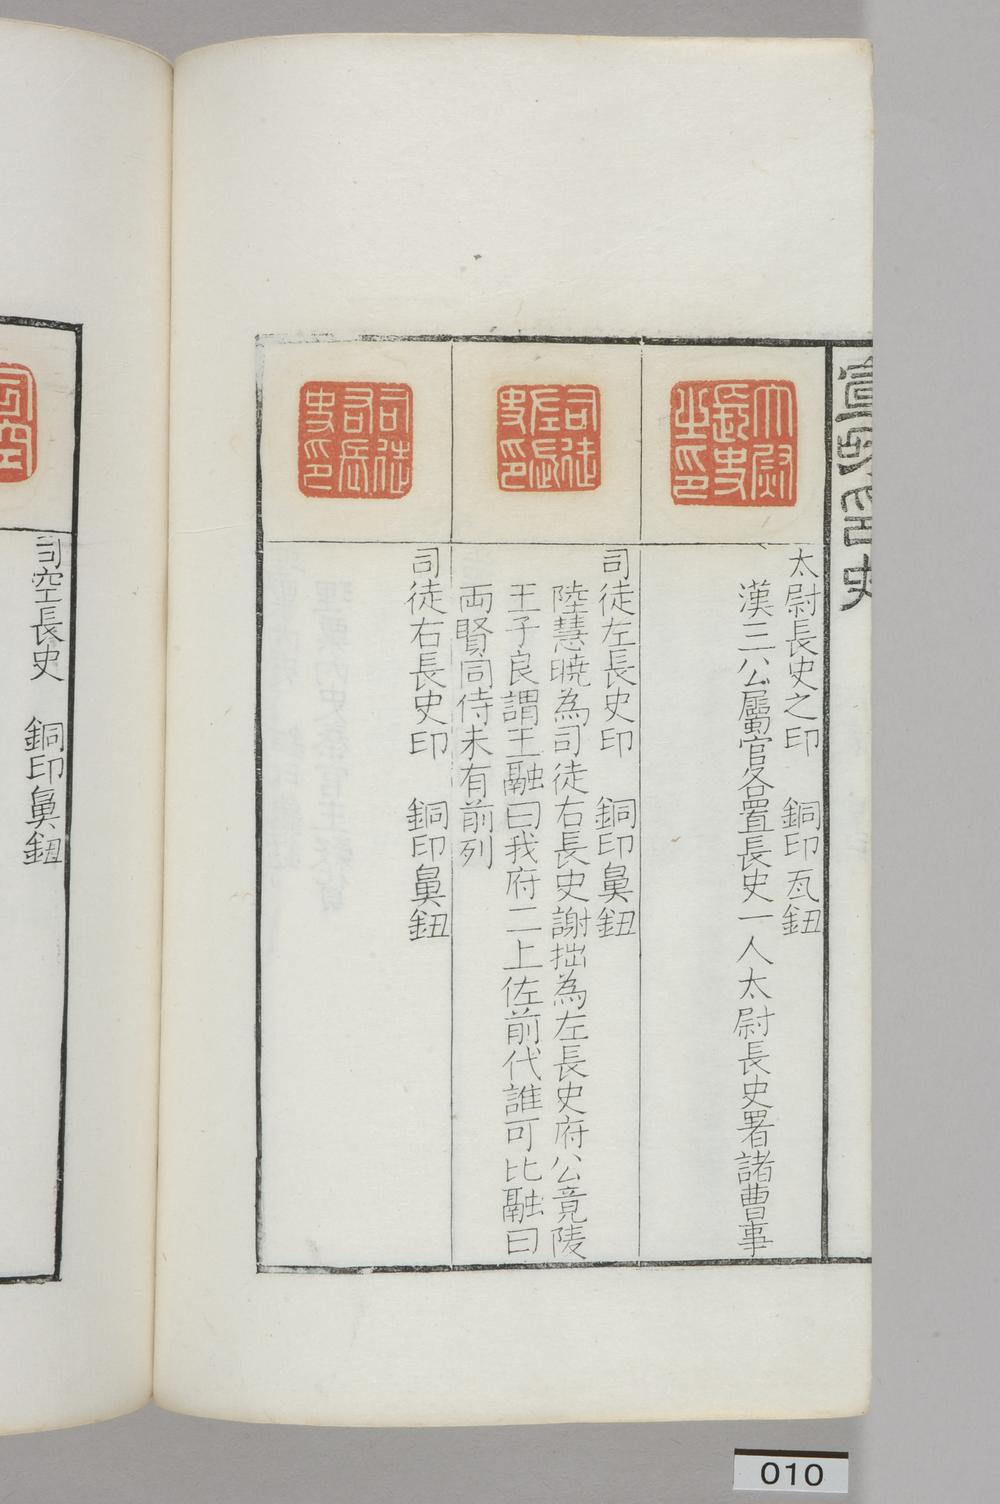 宣和印史
太尉長史之印
太尉長史之印　銅印瓦鈕
漢三公屬官各置長史一人太尉長史署諸曹事
司徒左長史印
司徒左長史印　銅印鼻鈕
陸慧曉為司徒右長史謝朏為左長史府公竟陵
王子良謂王融曰我府二上佐前代誰可比融曰
兩賢同侍未有前列
司徒右長史印
司徒右長史印　銅印鼻鈕
司空
司空長史　銅印鼻鈕
010